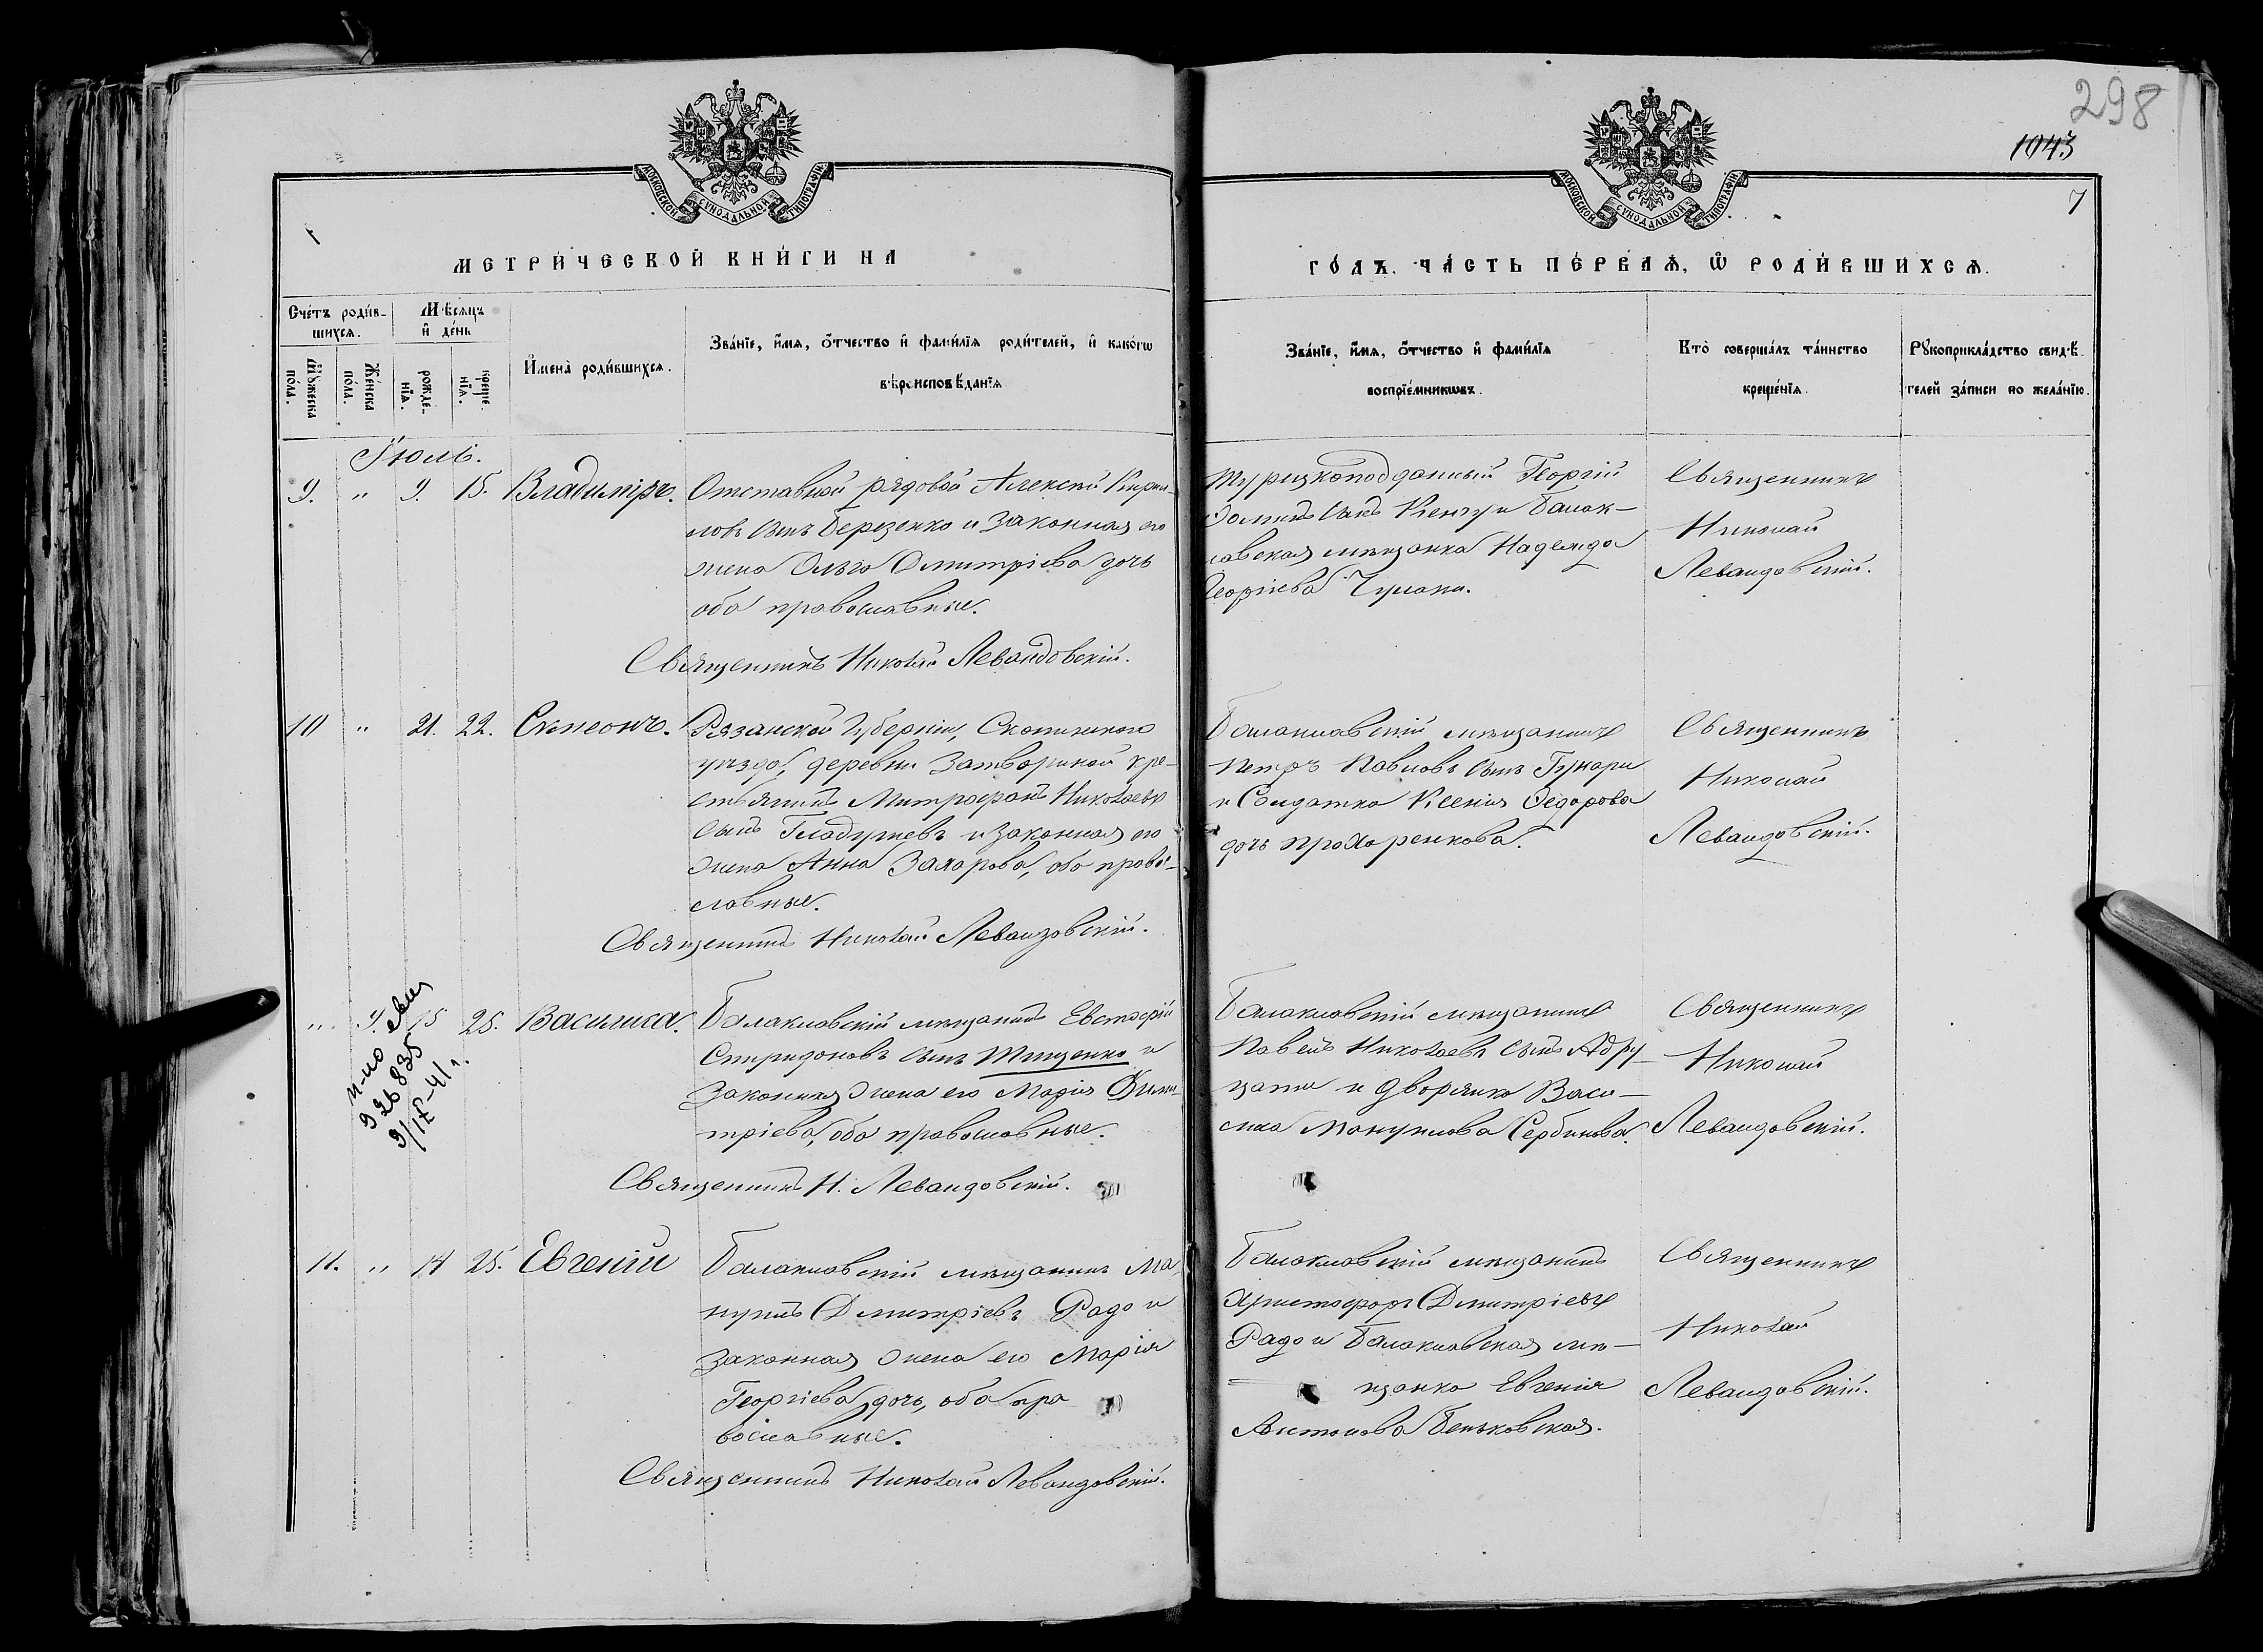 298
1043
7
МОСКОВСКОЙ СУНОДАЛЬНОЙ ТИПОГРАФІИ
МОСКОВСКОЙ СУНОДАЛЬНОЙ ТИПОГРАФІИ
МЕТРИ́ЧЕСКОЙ КНИ́ГИ НА
ГО́ДЪ, ЧА́СТЬ ПЕ́РВАѦ, Ѽ РОДИ́ВШИХСѦ.
Сче́тъ роди́в-
шихсѧ.
Мꙋ́жеска по́ла.
Же́нска по́ла.
Мѣ́сѧцъ
и҆ де́нь
рожде́-
нїѧ.
креще́-
нїѧ.
И҆мена̀ роди́вшихсѧ.
Зва́нїе, и҆́мѧ, ѻ҆́тчество и҆ фами́лїѧ роди́телей, и҆ како́гѡ
вѣроисповѣ́данїѧ
Зва́нїе, и҆́мѧ, ѻ҆́тчество и҆ фами́лїѧ
воспрїе́мникѡвъ.
Кто̀ соверша́лъ та́инство
креще́нїѧ.
Рꙋкоприкла́дство свидѣ́-
телей за́писи по жела́нїю.
Іюль.
9. " 9. 15. Владиміръ.
Отставной рядовой Алексѣй Кирил-
ловъ сынъ Березенко и законная его
жена Ольга Дмитріева дочь
оба православные.
Священникъ Николай Левандовскій.
Турецкоподданный Георгій
сынъ и Балак-
лавская мѣщанка Надежда
Георгіева
Священникъ
Николай
Левандовскій.
10 " 21. 22. Симеонъ.
Рязанской Губерніи, Скопинскаго
уѣзда, деревни Затворной кре-
стьянинъ Митрофанъ Николаевъ
сынъ Гладушевъ и законная его
жена Анна Захарова, оба право-
славные.
Священникъ Николай Левандовскій.
Балаклавскій мѣщанинъ
Петръ Павловъ сынъ
и Солдатка Ксенія Ѳедорова
дочь Прохоренкова.
Священникъ
Николай
Левандовскій.
" 9. 15 25. Василиса.
926835
9/IX-41 г.
Балаклавскій мѣщанинъ Евстафій
Спиридоновъ сынъ Тищенко и
законная жена его Марія Дими-
тріева, оба православные.
Священникъ Н. Левандовскій.
Балаклавскій мѣщанинъ
Павелъ Николаевъ сынъ
и дворянка Васи-
лиса Мануилова Сербинова.
Священникъ
Николай
Левандовскій.
11. " 14 25. Евгеній
Балаклавскій мѣщанинъ Ма-
нуилъ Дмитріевъ Радо и
законная жена его Марія
Георгіева дочь, оба пра
вославные.
Священникъ Николай Левандовскій.
Балаклавскій мѣщанинъ
Христофоръ Дмитріевъ
Радо и Балаклавская мѣ-
щанка Евгенія
Антонова Беньковская.
Священникъ
Николай
Левандовскій.